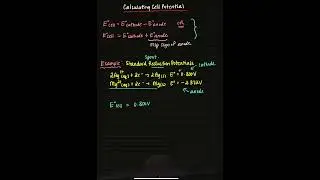 Calculating Cell Potential
E°cell = E°cathode - E°anode OR
E°cell = E°cathode + E°anode
flip sign of anode
Spont.
Example: Standard Reduction Potentials
2Ag⁺(aq) + 2e⁻ → 2Ag(s) E° = 0.80V cathode
Mg²⁺(aq) + 2e⁻ → Mg(s) E° = -2.37V
anode
E°cell = 0.80V